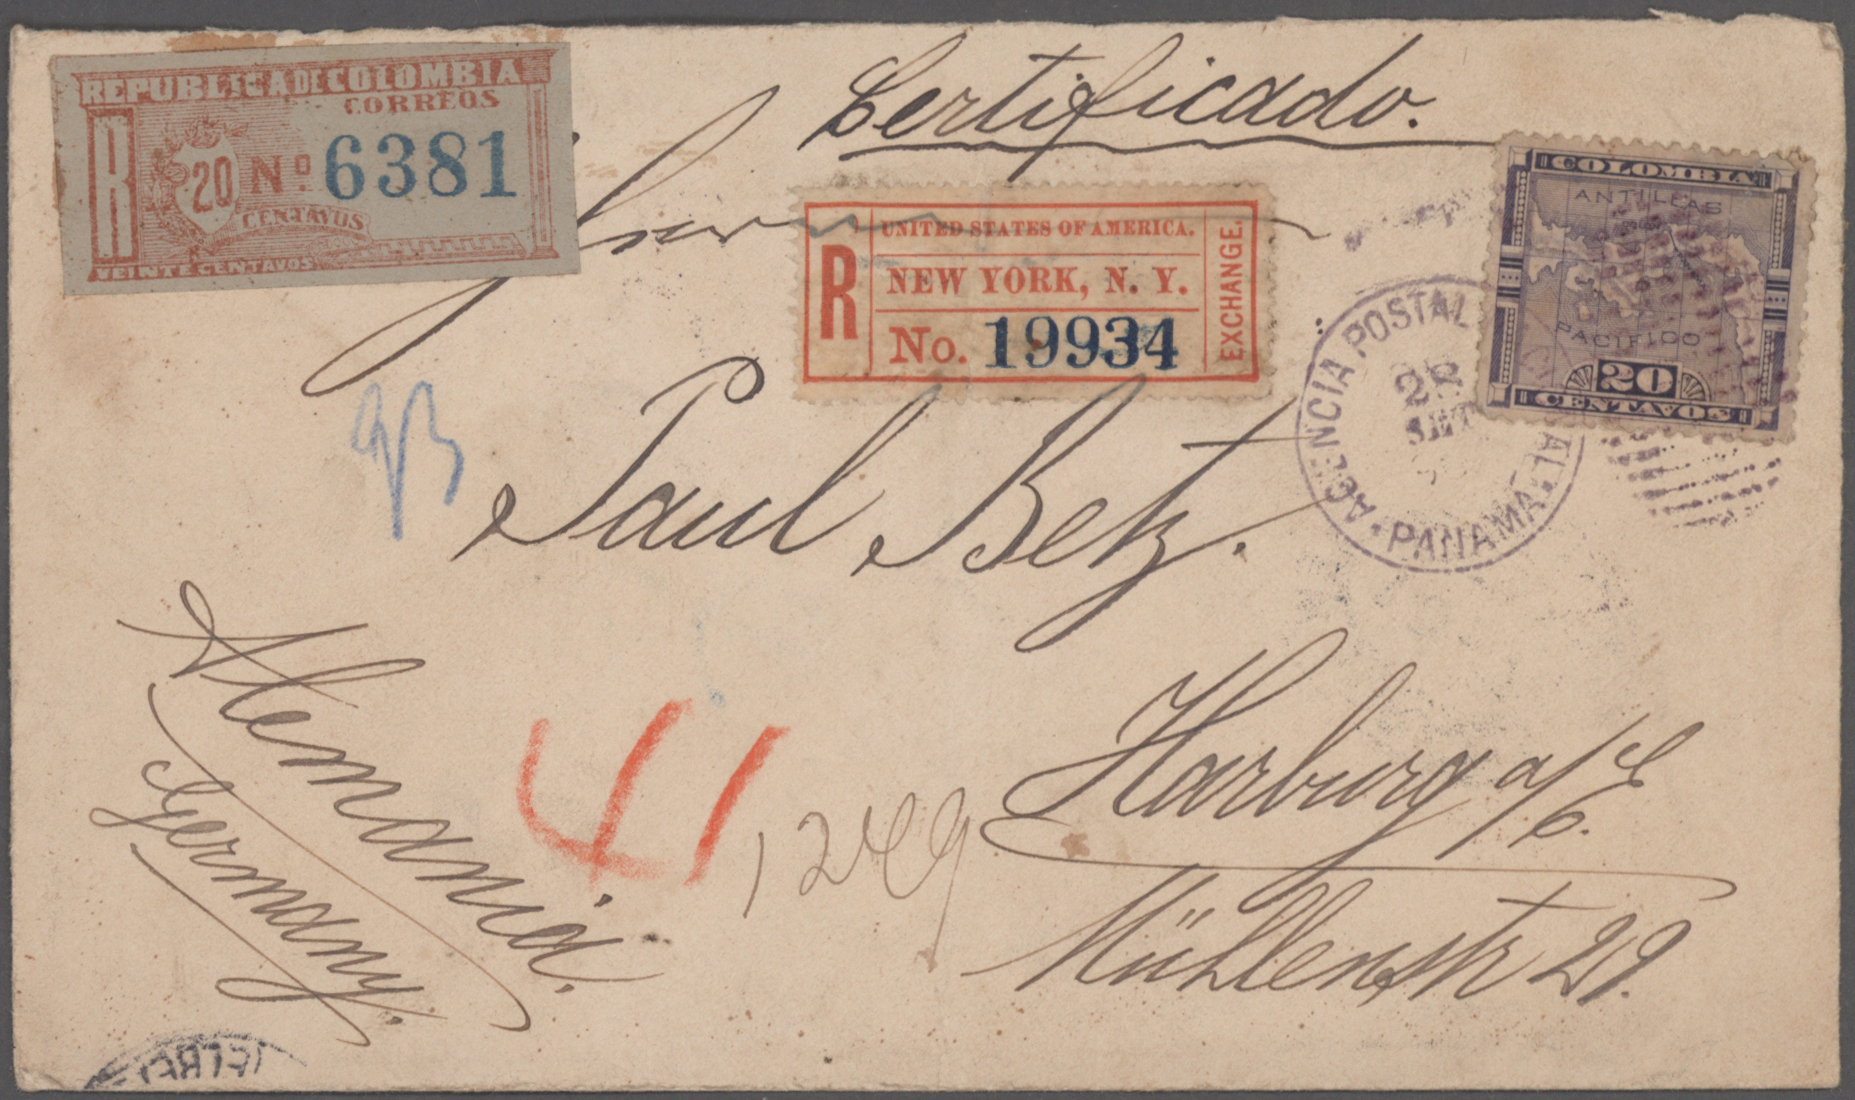 REPUBLICA DE COLOMBIA
CORREOS
R
20
No. 6381
CENTAVUS
VEINTE CENTAVOS
Certificado.
R
UNITED STATES OF AMERICA.
NEW YORK, N. Y.
No. 19934
EXCHANGE.
COLOMBIA
ANTILLAS
PACIFICO
20
CENTAVOS
AGENCIA POSTAL
28
SET
PANAMA
Paul Betz.
Harburg a/E
Mühlenstr 29.
Alemania.
Germany.
41